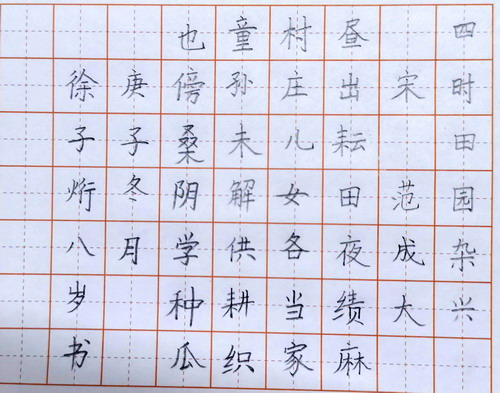 四时田园杂兴
宋 范成大
昼出耘田夜绩麻
村庄儿女各当家
童孙未解供耕织
也傍桑阴学种瓜
庚子冬月
徐子烆八岁书